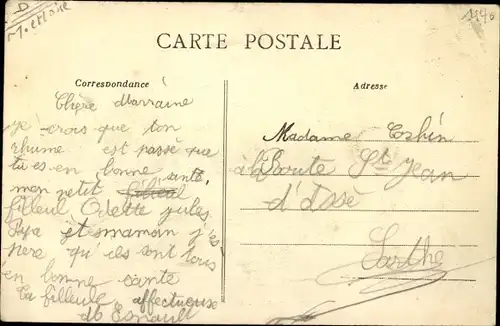 D
M. et Loire
1140
CARTE POSTALE
Correspondance
Adresse
Chère Marraine
je crois que ton
rhume est passé que
tu es en bonne santé,
mon petit filleul
filleul Odette jules
Papa èt maman j'es
pere qu'ils sont tous
en bonne santé
ta filleule affectueuse
Esnault
Madame
à la Route St jean
d'Assè
Sarthe